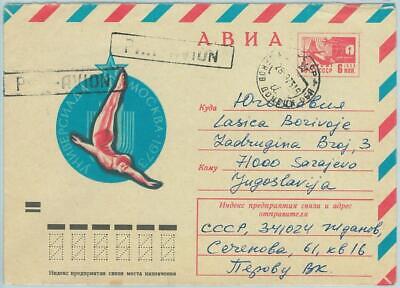 АВИА
PAR AVION
PAR AVION
ПОЧТА СССР
6 КОП.
УНИВЕРСИАДА МОСКВА 1973
Куда Югославия
Lasica Borivoje
Zadrugina Broj, 3
Кому 71000 Sarajevo
Jugoslavija
Индекс предприятия связи и адрес отправителя
СССР, 341024 Жданов,
Сеченова, 61, кв 16
Перову В.К.
Индекс предприятия связи места назначения